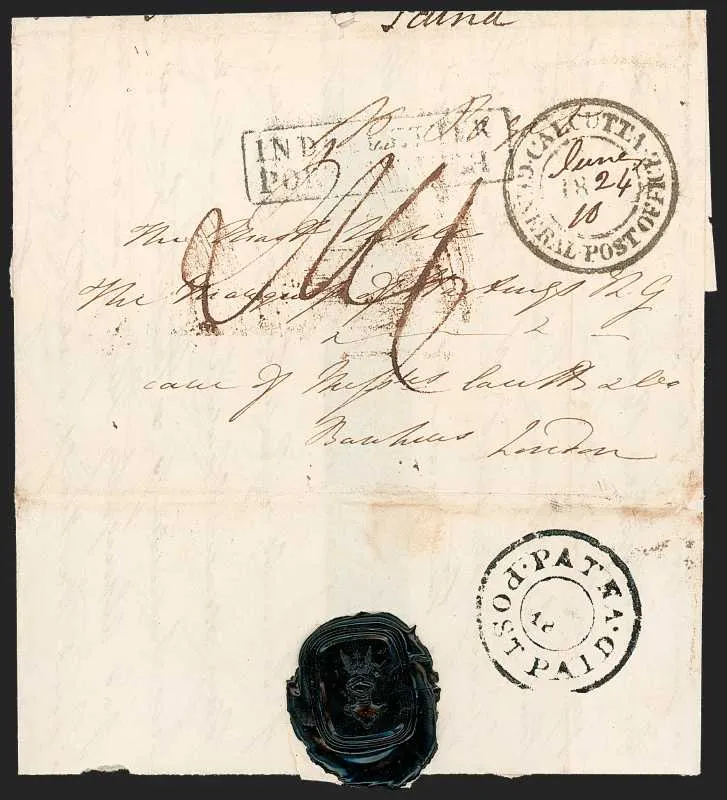 Patna
INDIA LETTER
PO
CALCUTTA GENERAL POST OFFICE
June
1824
10
The Most Noble
The Marquis of Hastings K.G
care of Messrs Coutts & Co
Bankers London
PATNA
POST PAID
18